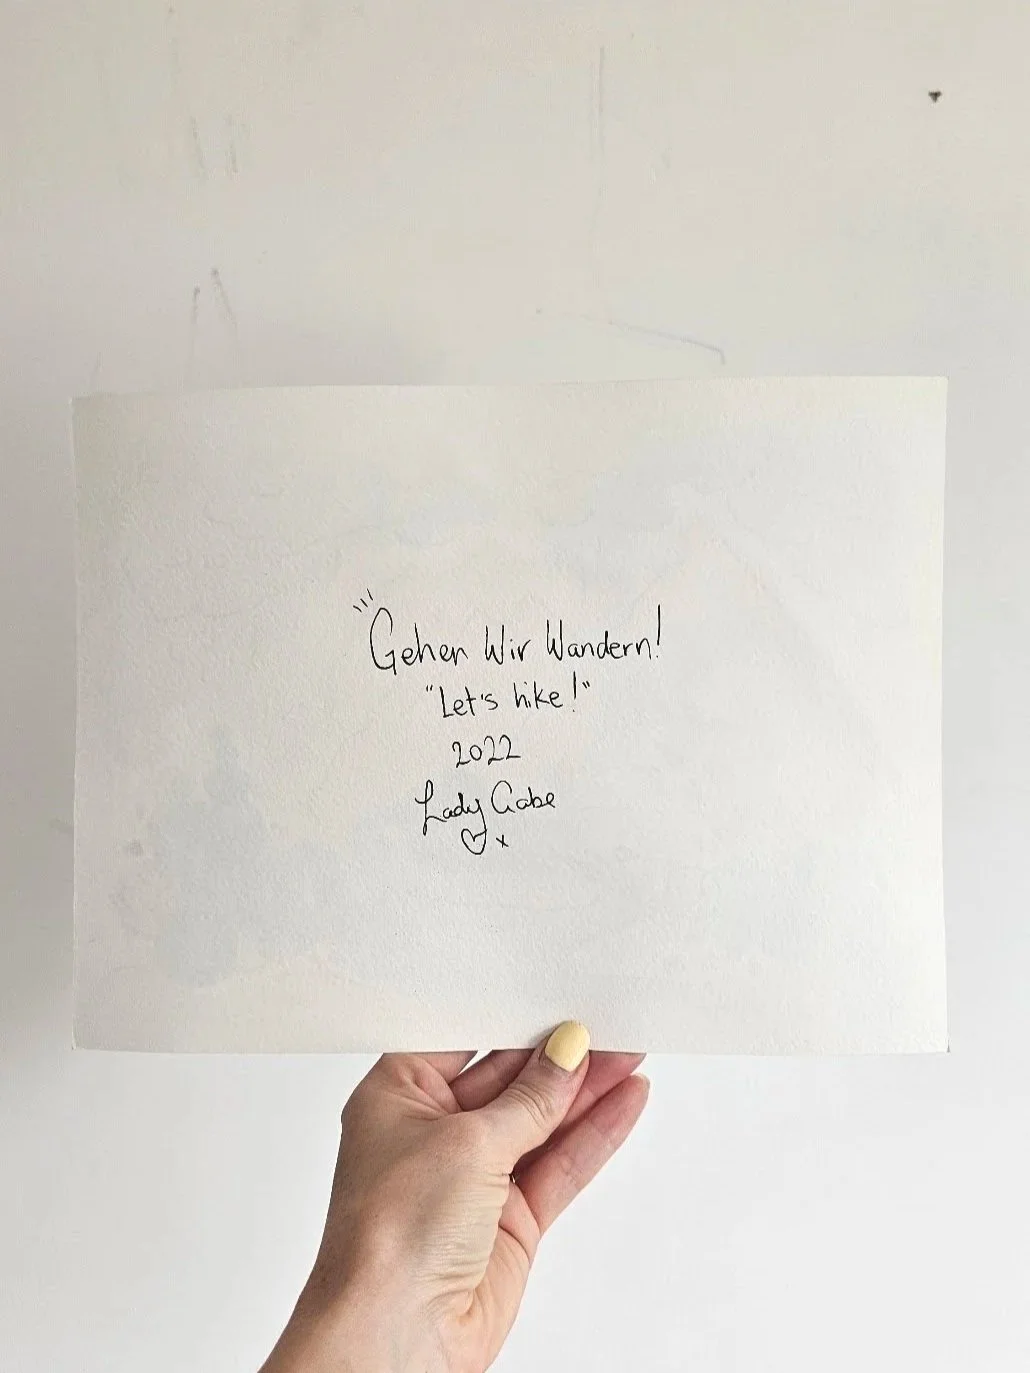 Gehen Wir Wandern!
"Let's hike!"
2022
Lady Gabe
♡ x